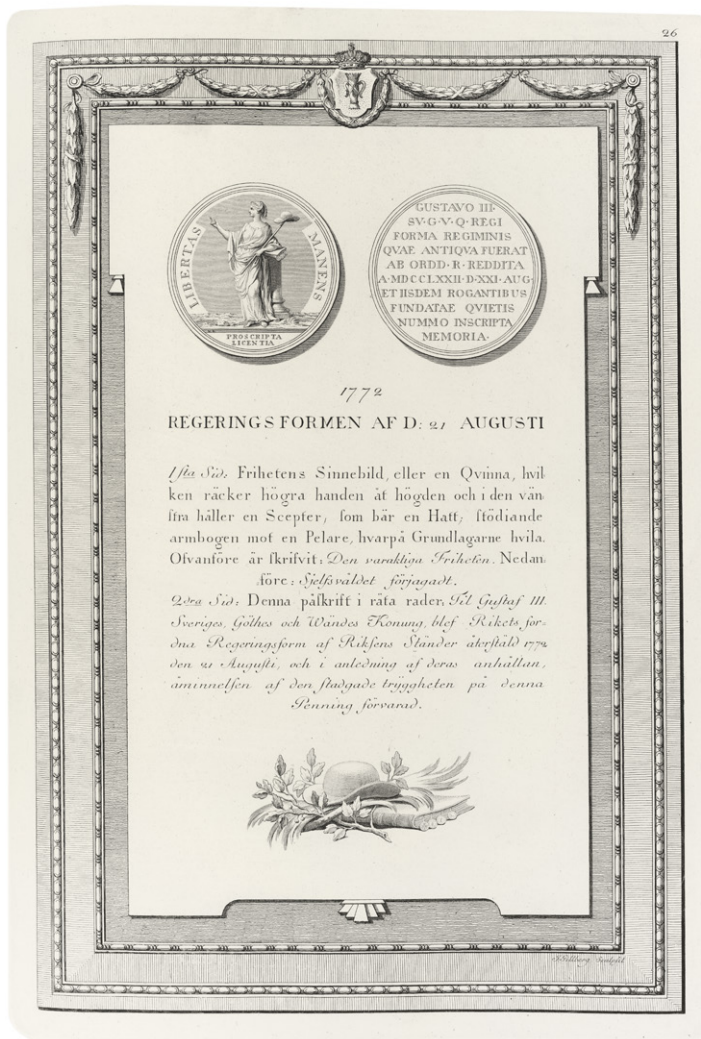 26
LIBERTAS MANENS
PROSCRIPTA
LICENTIA
GUSTAVO III·
SV·G·V·Q·REGI
FORMA REGIMINIS
QVAE ANTIQVA FUERAT
AB ORDD·R·REDDITA
A·MDCCLXXII·D·XXI·AUG·
ET IISDEM ROGANTIBUS
FUNDATAE QVIETIS
NUMMO INSCRIPTA
MEMORIA·
1772
REGERINGSFORMEN AF D: 21 AUGUSTI
1sta Sid: Frihetens Sinnebild, eller en Qvinna, hvil-
ken räcker högra handen åt högden och i den vän-
stra håller en Scepter, som bär en Hatt, stödiande
armbogen mot en Pelare, hvarpå Grundlagarne hvila.
Ofvanföre är skrifvit: Den varaktiga Friheten. Nedan-
före: Sjelfsväldet förjagadt.
2dra Sid: Denna påskrift i räta rader: Til Gustaf III.
Sveriges, Göthes och Wändes Konung, blef Rikets for-
dna Regeringsform af Riksens Ständer återstäld 1772
den 21 Augusti, och i anledning af deras anhållan,
åminnelsen af den stadgade tryggheten på denna
Penning förvarad.